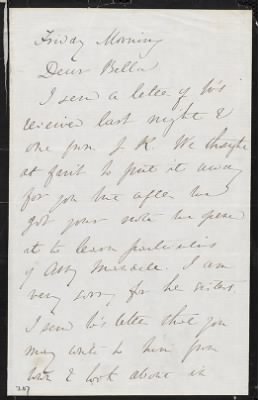 Friday Morning
Dear Bella
I send a letter of W's
receive last night &
one from J K. We thought
at first to put it away
for you but after we
got your note we open
it to learn particulars
of Asby Miracle. I am
very sorry for he sisters
I send W's letter that you
may write to him from
& look about in